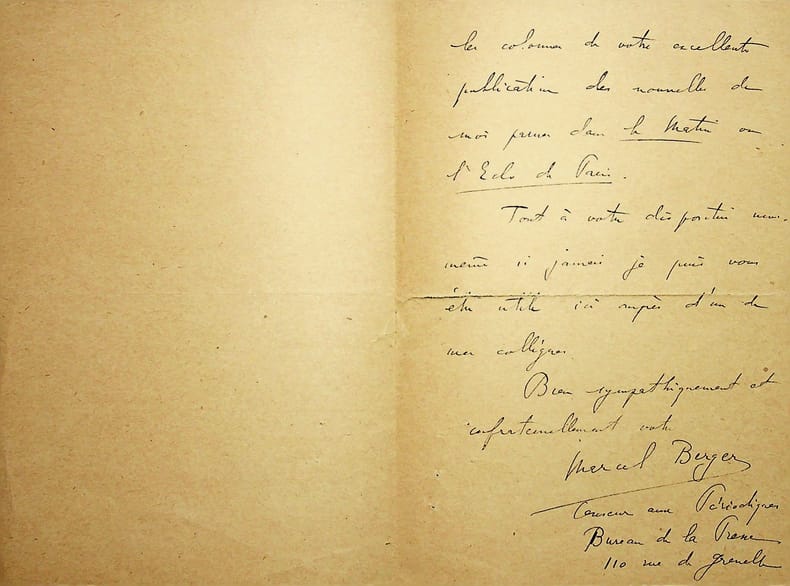 les colonnes de votre excellente
publication des nouvelles de
moi parues dans le Matin ou
l'Echo de Paris.
Tout à votre disposition moi-
même si jamais je puis vous
être utile ici auprès d'un de
mes collègues.
Bien sympathiquement et
confraternellement votre
Marcel Berger
Censeur aux Périodiques
Bureau de la Presse
110 rue de Grenelle